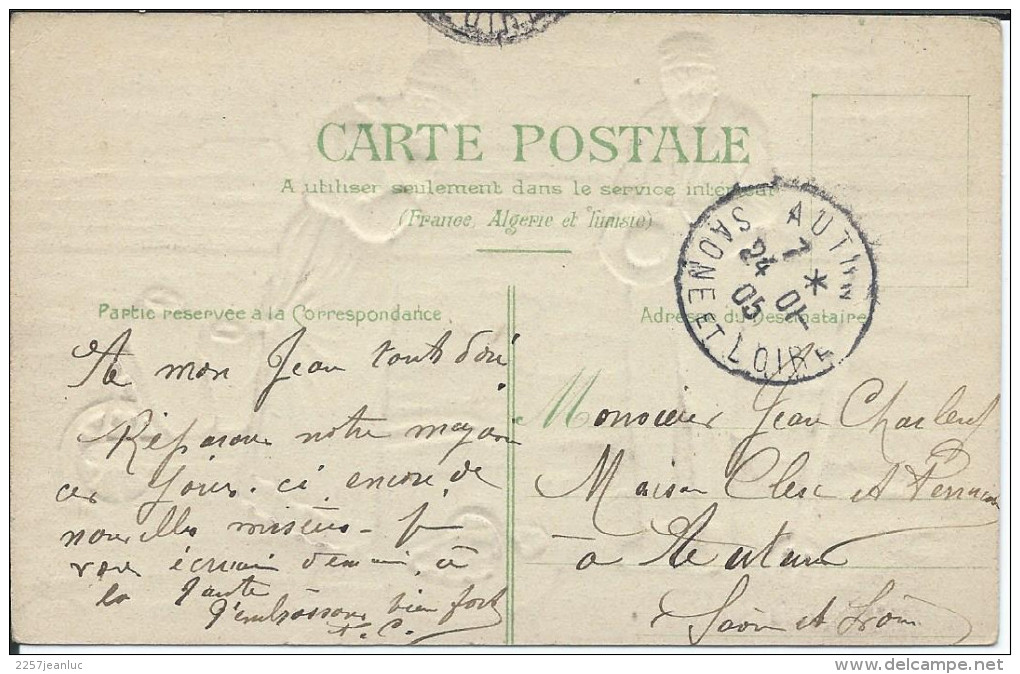 CARTE POSTALE
A utiliser seulement dans le service intérieur
(France, Algérie et Tunisie)
AUTUN
7 *
24 01
05
SAONE ET LOIRE
Partie réservée à la Correspondance
Adresse du Destinataire
A mon Jean tout doré
Réparons notre magasin
ces jours-ci encore de
nouvelles misères - Je
vous écrirai demain, à
la Tante
J'embrassons bien fort
Monsieur Jean
Maison Clerc et
à Autun
Saône et Loire
2257jeanluc
delcampe.net